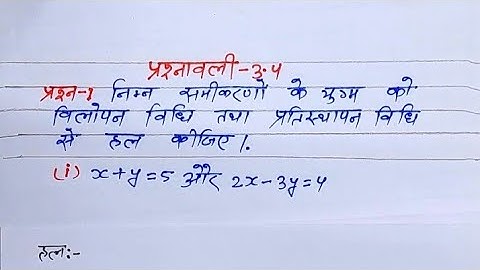 प्रश्नावली-3.4
प्रश्न-1 निम्न समीकरणों के युग्म को
विलोपन विधि तथा प्रतिस्थापन विधि
से हल कीजिए।.
(i) x+y=5 और 2x-3y=4
हल:-